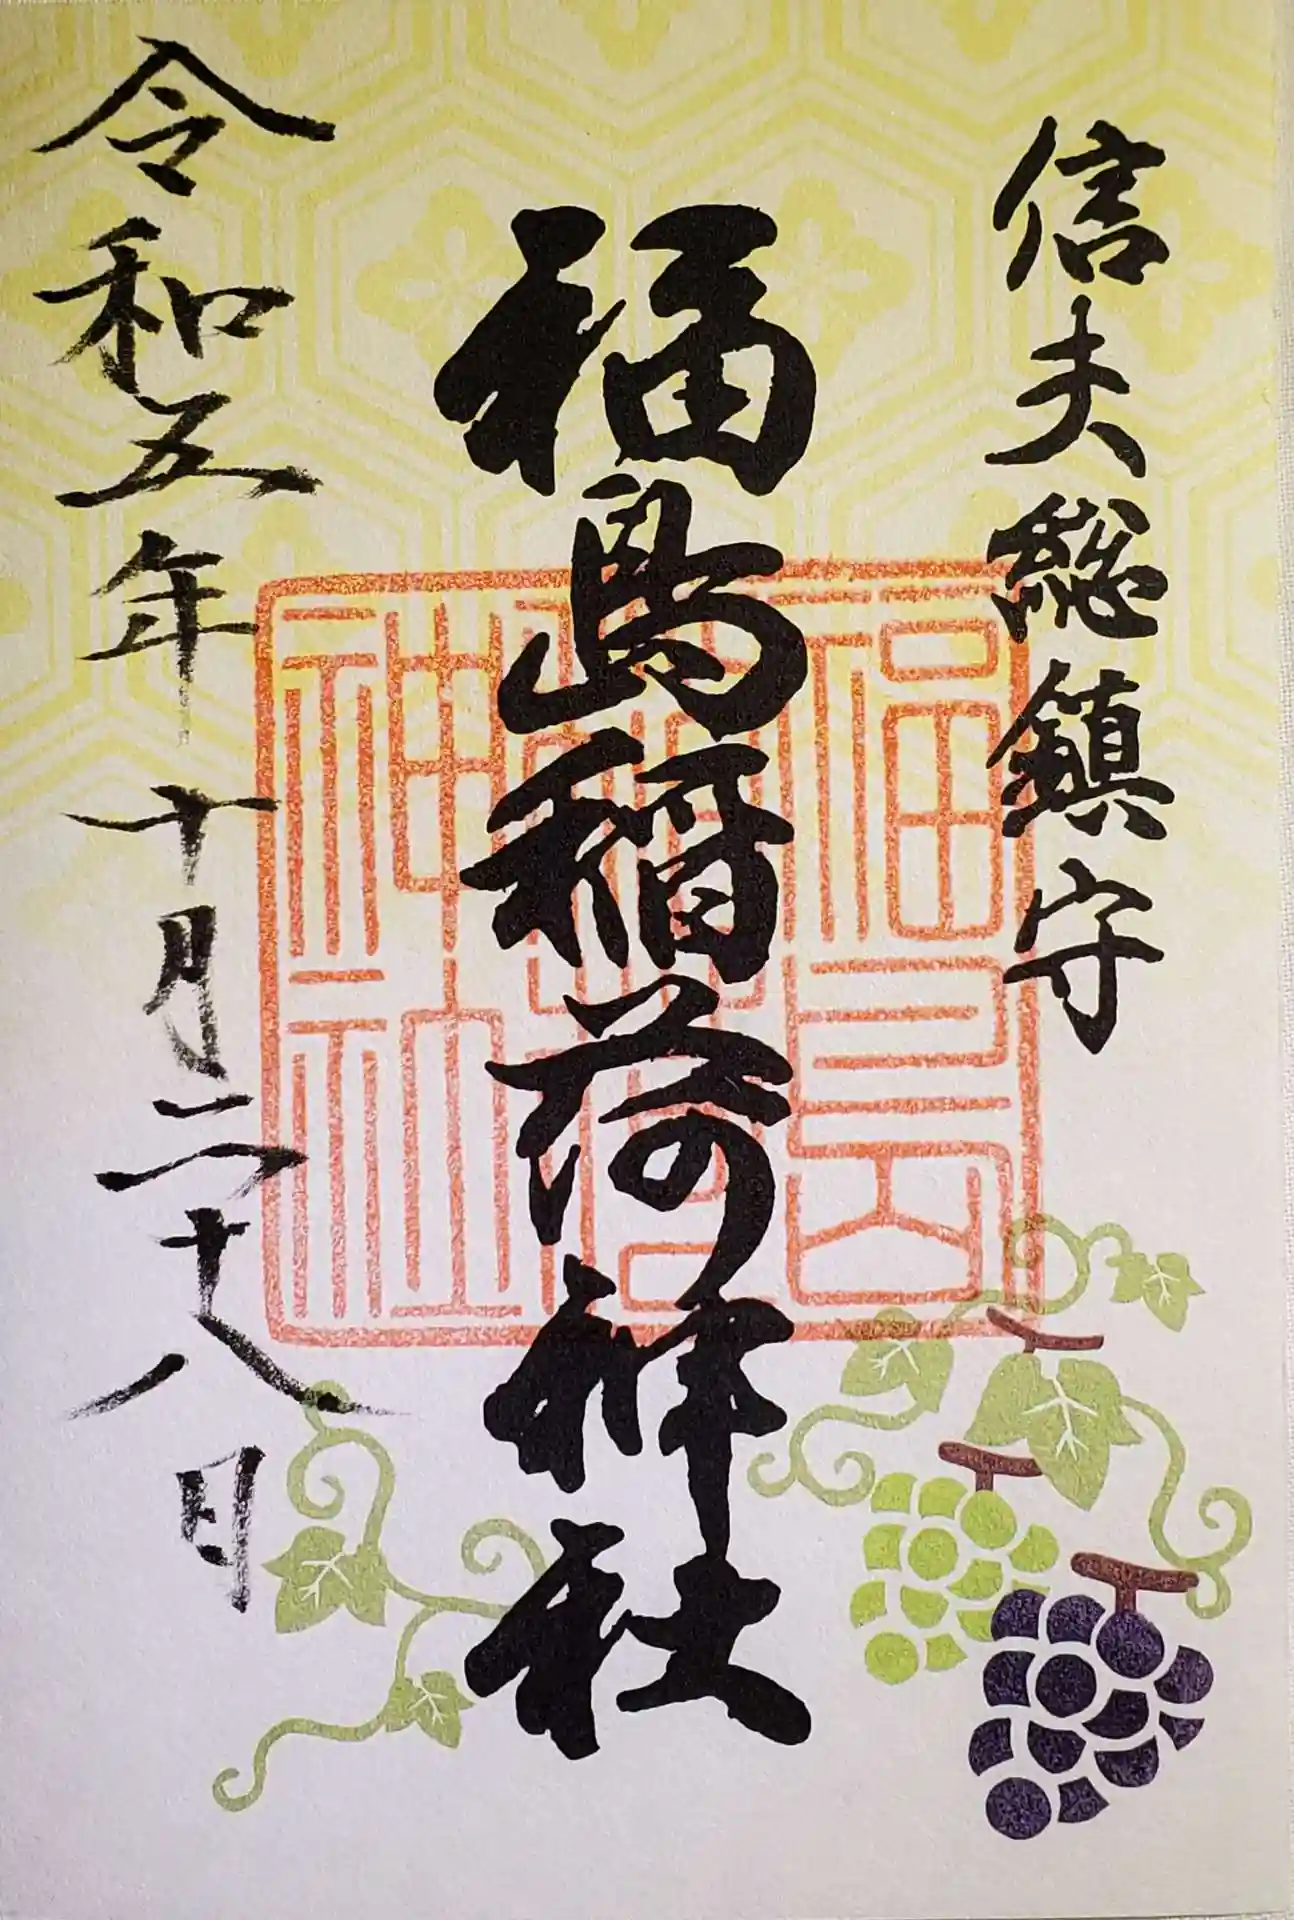 信夫総鎮守
福島稲荷神社
福島
稲荷
神社
令和五年十月二十八日